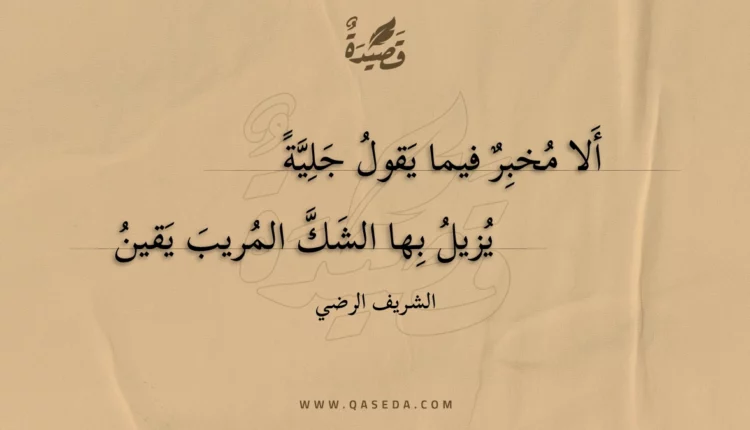 قَصِيْدَةٌ
أَلا مُخبِرٌ فيما يَقولُ جَلِيَّةً
يُزيلُ بِها الشَكَّ المُريبَ يَقينُ
الشريف الرضي
WWW.QASEDA.COM